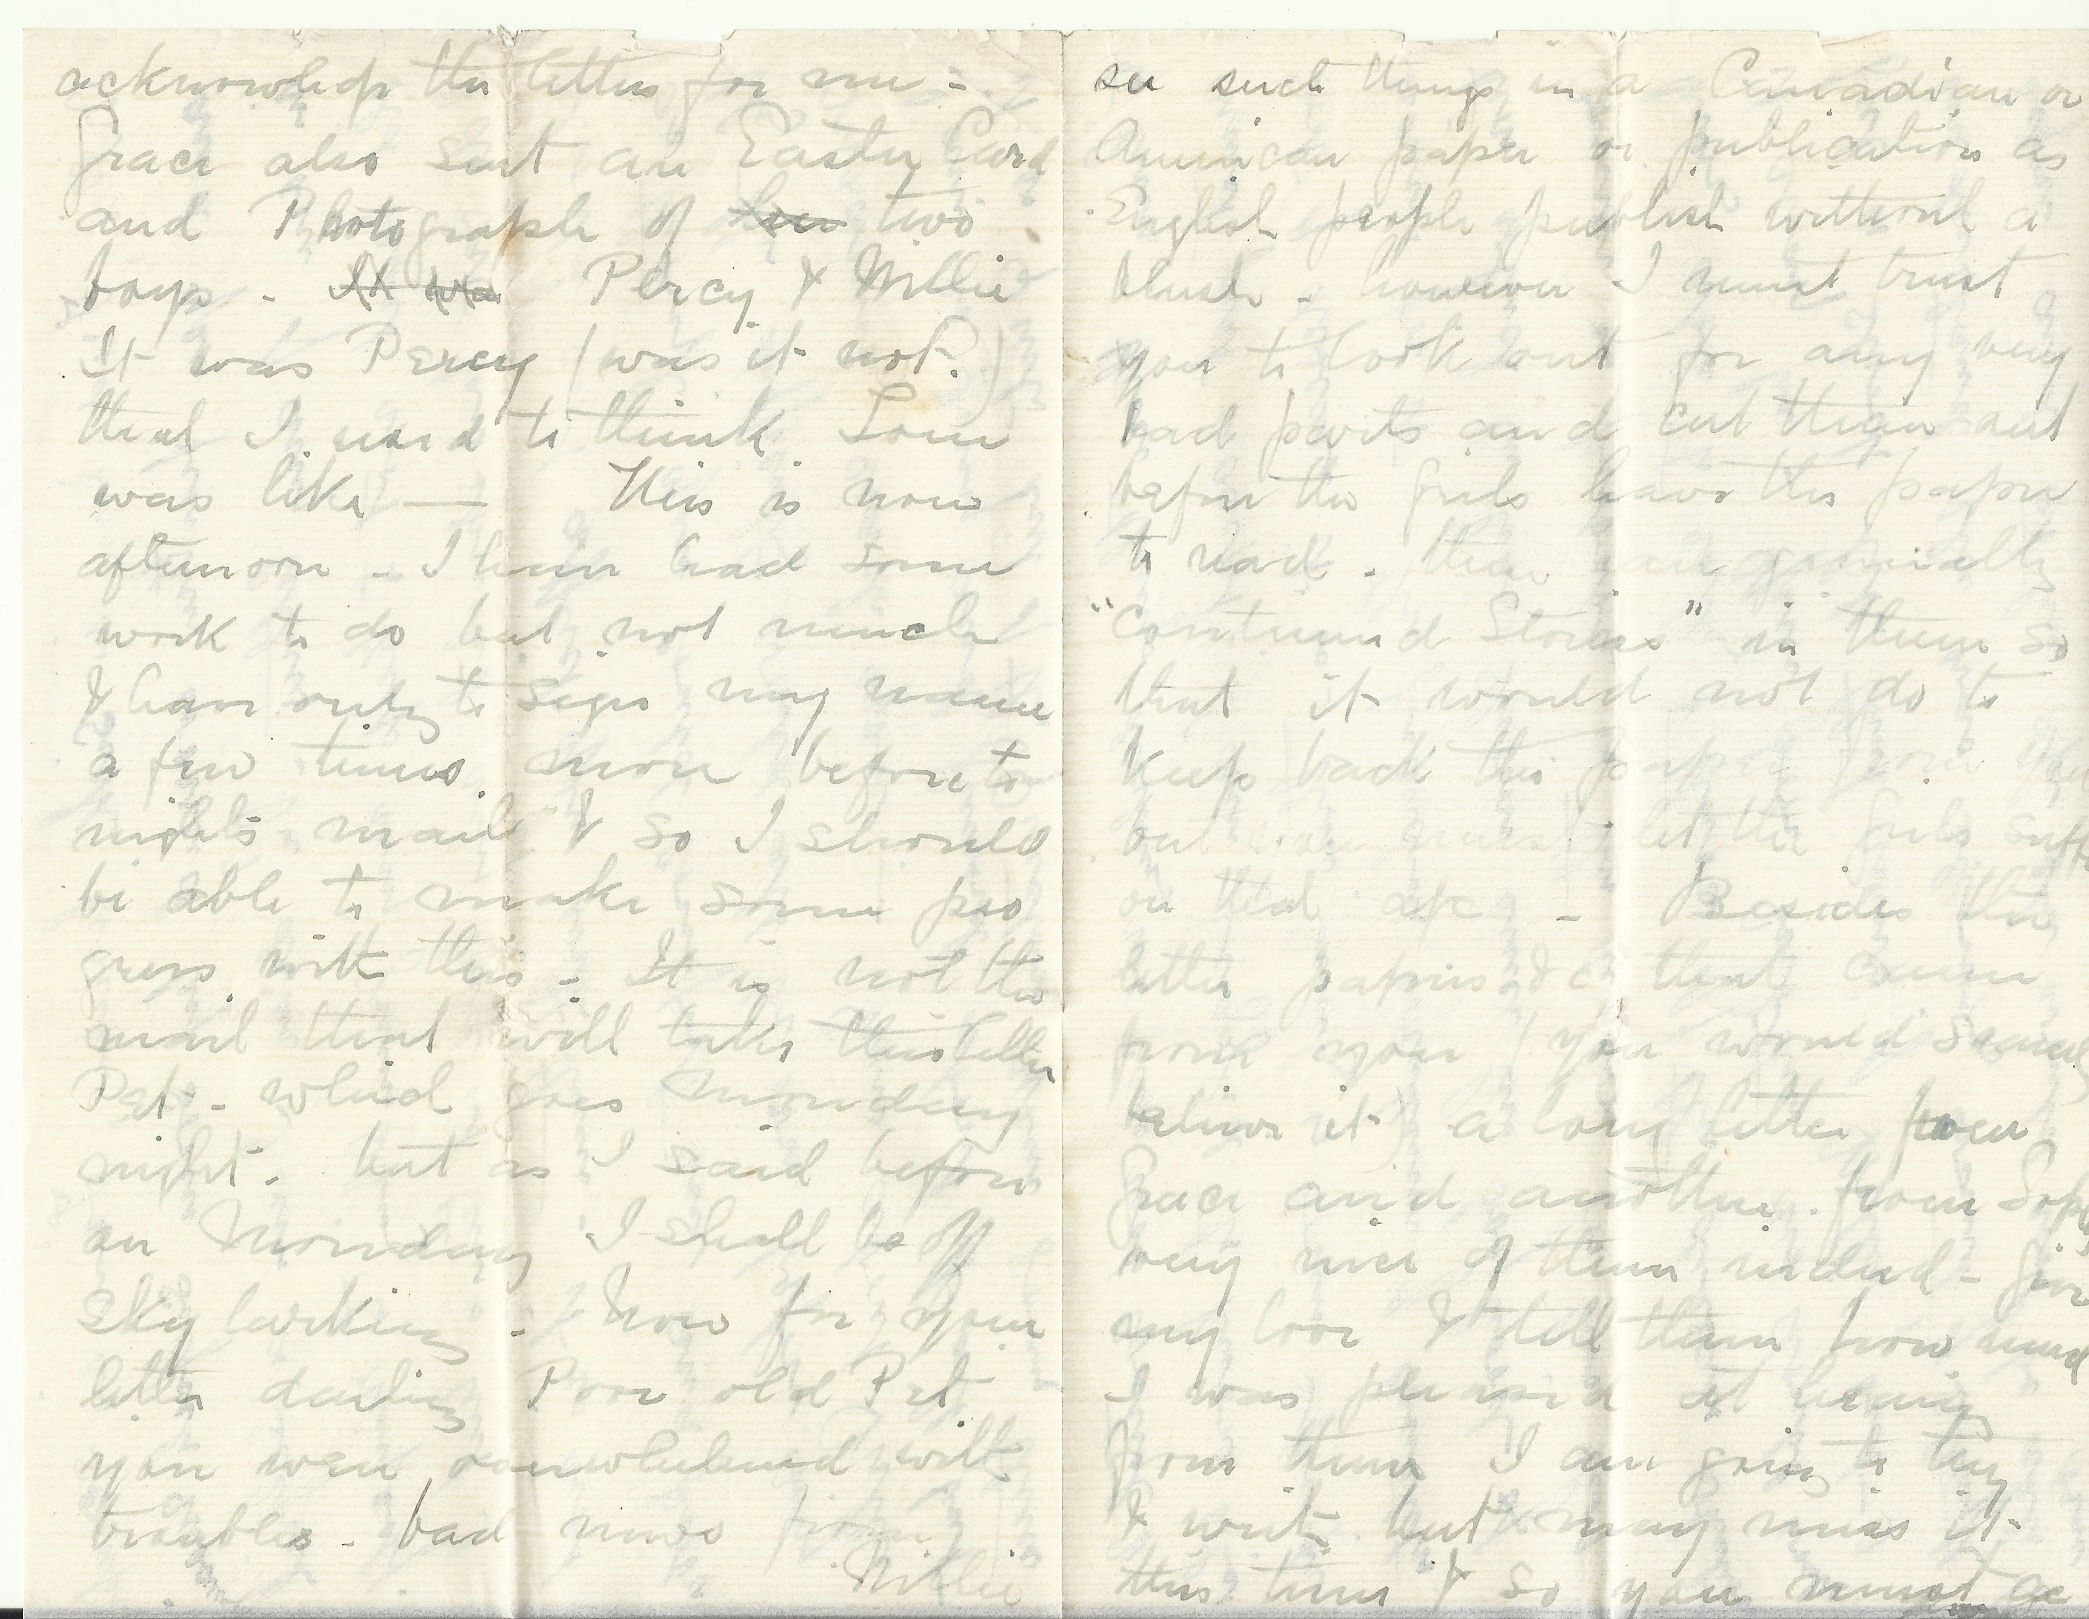 acknowledge the letters for me -
Grace also sent an Easter Card
and Photograph of her two
boys - It was Percy & Willie
It was Percy (was it not?)
that I used to think Lou
was like — This is now
afternoon - I have had some
work to do but not much
I have only to sign my name
a few times more before to
nights mail & so I should
be able to make some pro
gress with this - It is not the
mail that will take this letter
Pet - which goes Monday
night - but as I said before
on Monday I shall be off
Sky larking - Now for your
letter darling Poor old Pet
you were overwhelmed with
troubles - bad news from
Millie
see such things in a Canadian or
American paper or publication as
English people publish without a
blush - however I must trust
you to look out for any very
bad parts and cut them out
before the girls have the paper
to read - there are generally
"Continued Stories" in them so
that it would not do to
keep back the paper from them
but you must let the girls suffer
on that a/c - Besides the
letter papers &c that came
from you (you would scarcely
believe it) a long letter from
Grace and another from Soph
very nice of them indeed - give
my love & tell them how much
I was pleased at hearing
from them I am going to try
& write but may miss it
this time & so you must ac